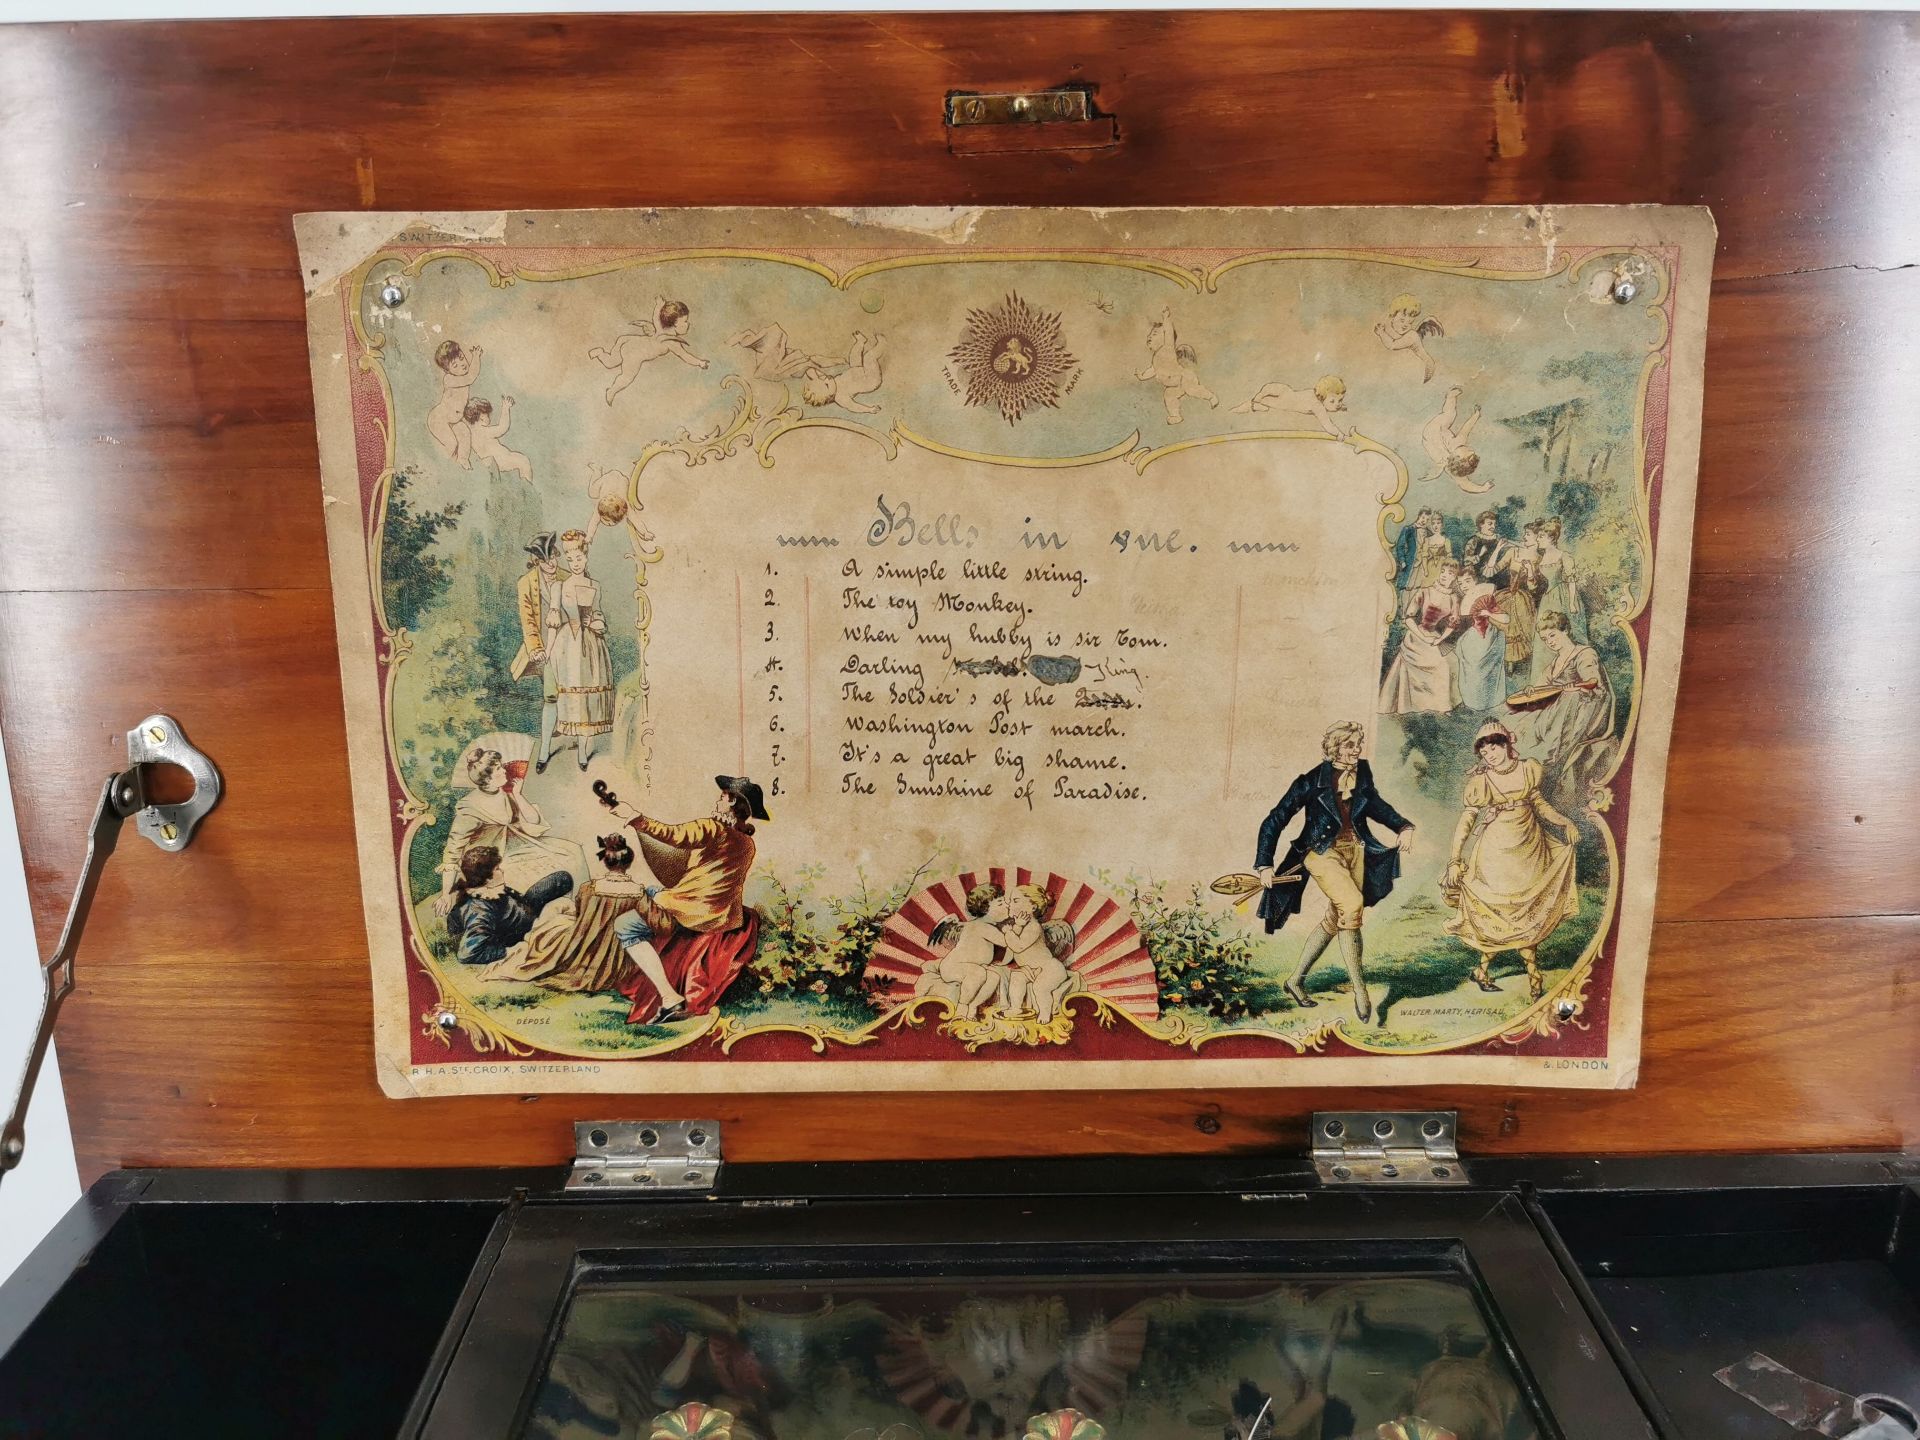 SWITZERLAND
TRADE MARK
Bells in
1. A simple little string.
2. The toy Monkey.
3. When my hubby is sir Tom.
4. Darling King.
5. The Soldier's of the
6. Washington Post march.
7. It's a great big shame.
8. The Sunshine of Paradise.
DÉPOSÉ
WALTER MARTY, HERISAU
R.H.A. STE. CROIX, SWITZERLAND
& LONDON